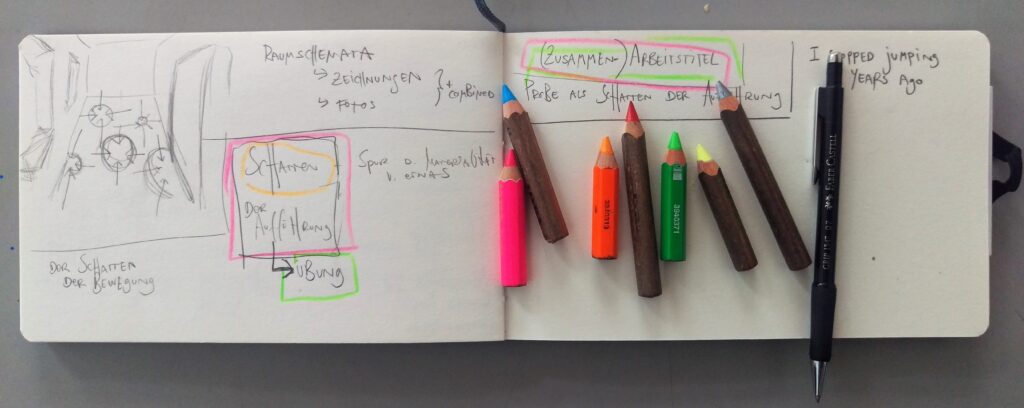 RAUMSCHEMATA
↳ ZEICHNUNGEN
↳ FOTOS
} + COMBINED
SCHATTEN
DER
AUFFÜHRUNG
ÜBUNG
SPUR
V. ETWAS
DER SCHATTEN
DER BEWEGUNG
(ZUSAMMEN) ARBEITSTITEL
PROBE ALS SCHATTEN DER
I jumping
YEARS AGO
FABER CASTELL
3940371